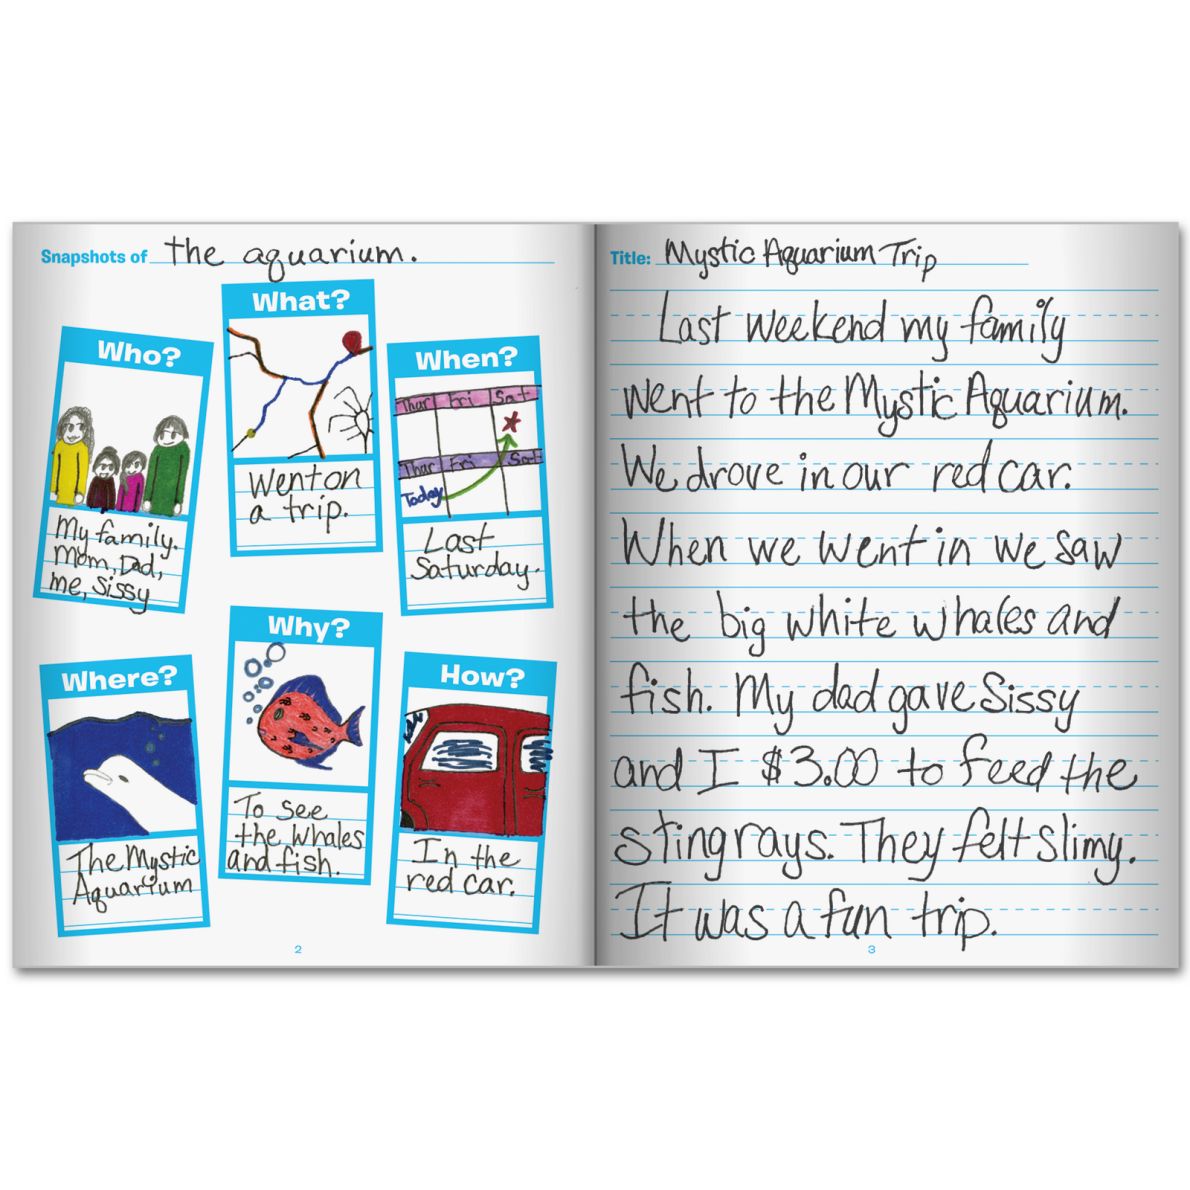 Snapshots of the aquarium.
Who?
Thur Fri Sat
Thur Fri Sat
Today
My family.
Mom, Dad,
me, Sissy
What?
Went on
a trip.
When?
Last
Saturday.
Where?
The Mystic
Aquarium
Why?
To see
the whales
and fish.
How?
In the
red car.
2
Title: Mystic Aquarium Trip
Last weekend my family
went to the Mystic Aquarium.
We drove in our red car.
When we went in we saw
the big white whales and
fish. My dad gave Sissy
and I $3.00 to feed the
stingrays. They felt slimy.
It was a fun trip.
3